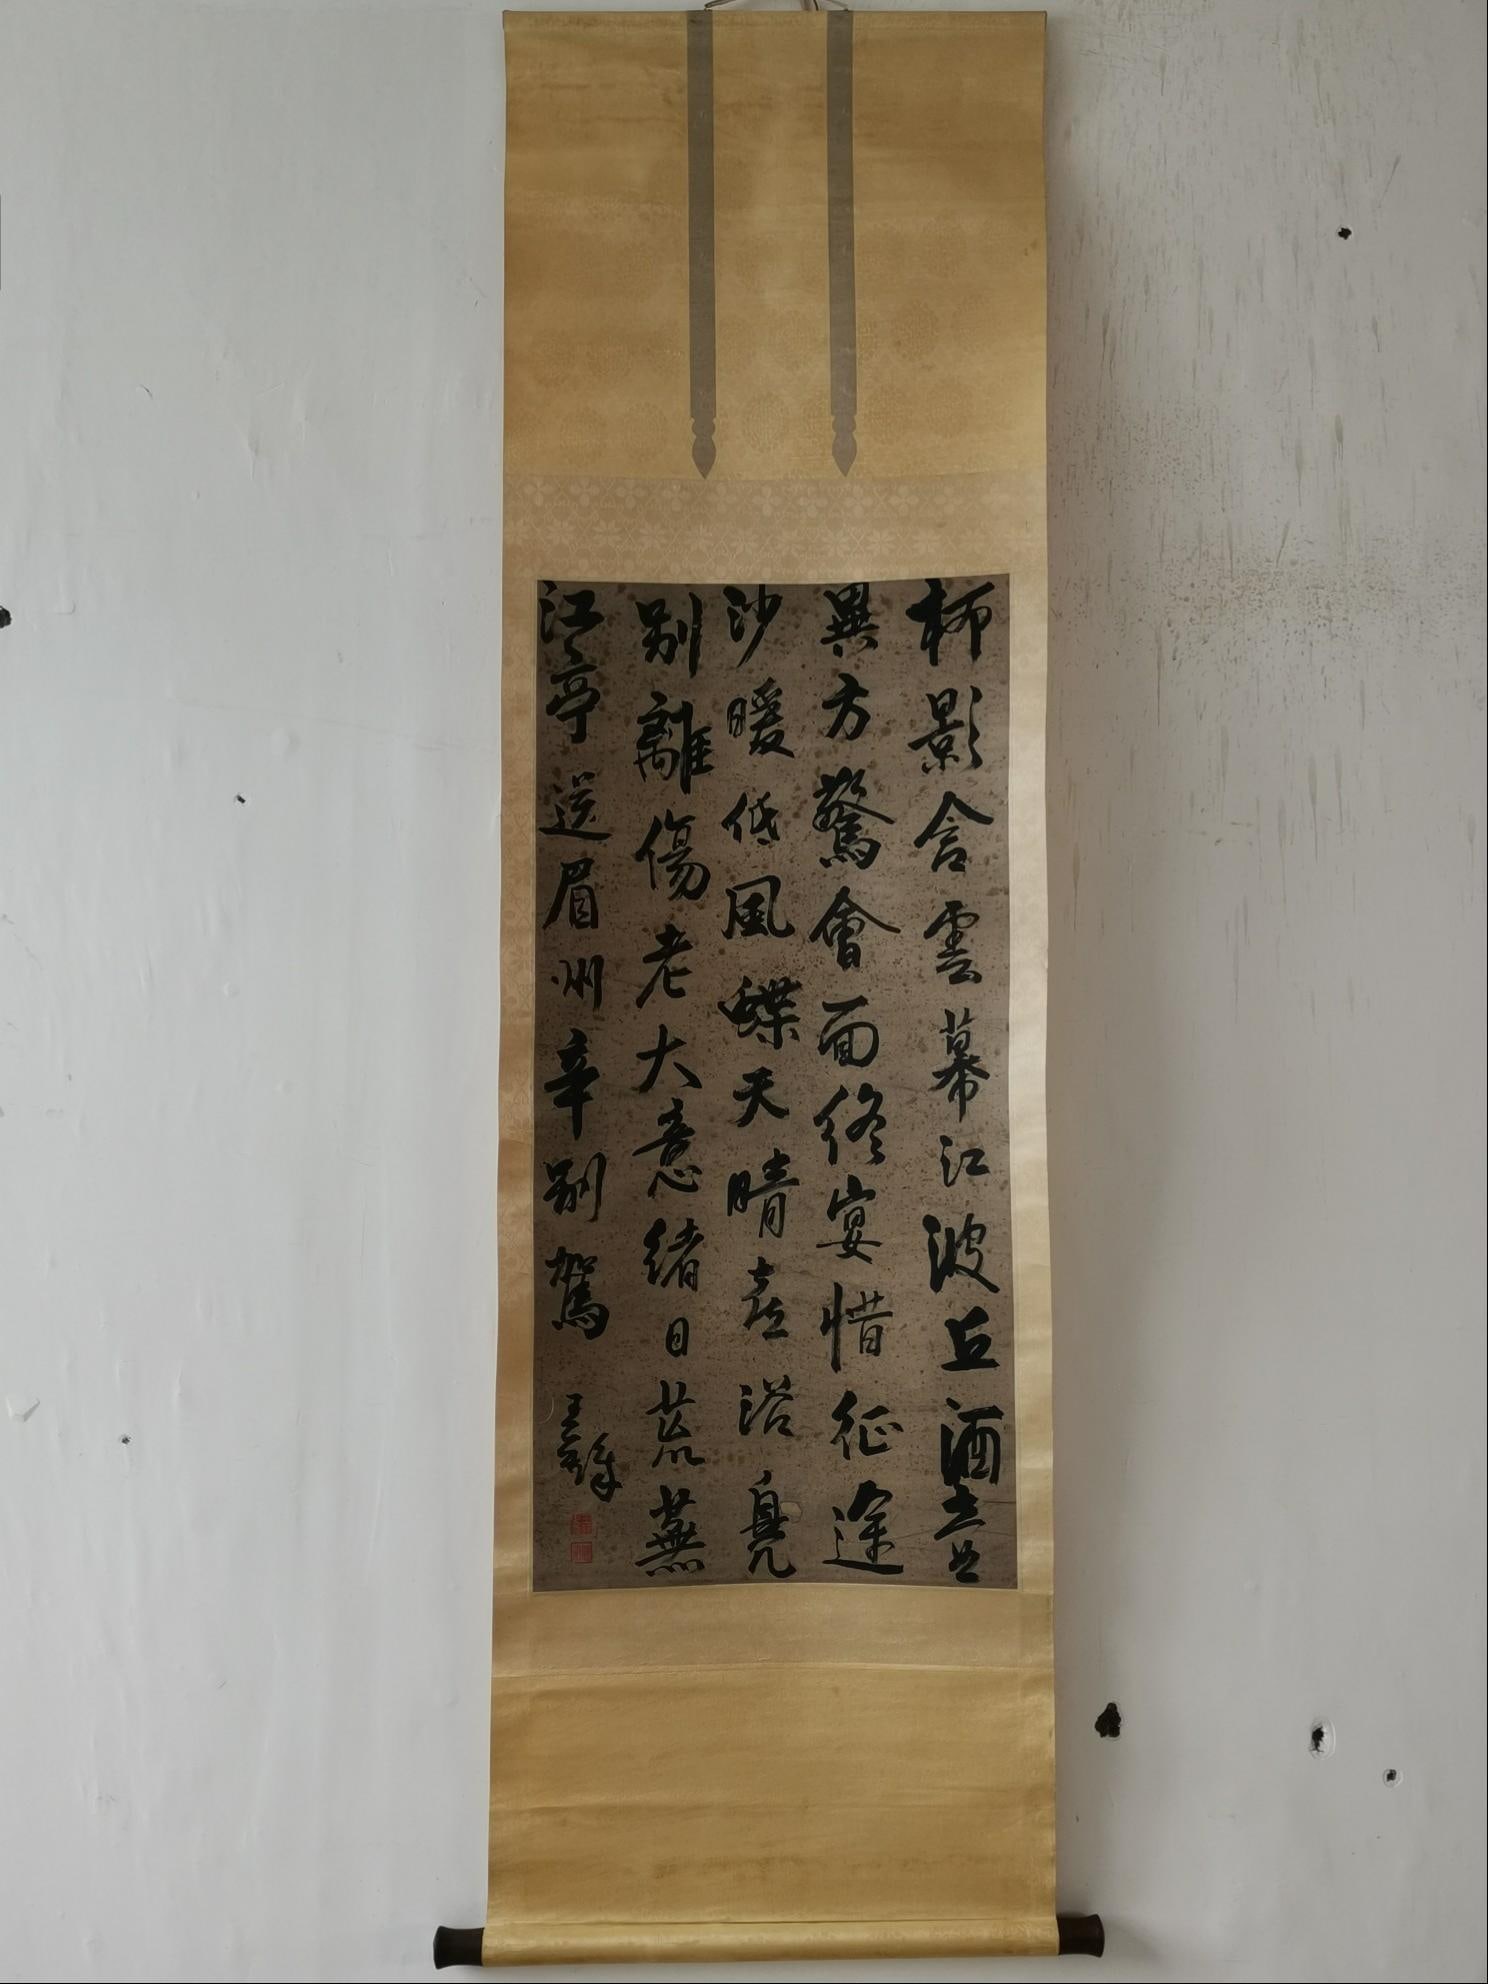 柳影含雲幕江波近酒壺
異方驚會面終宴惜征途
沙暖低風蝶天晴喜浴鳧
別離傷老大意緒日荒蕪
江亭送眉州辛別駕 王鐸